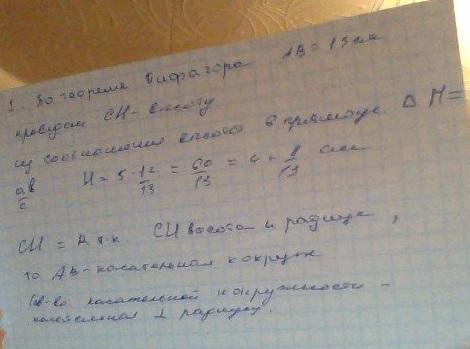 1. По теореме Пифагора AB = 13 см
проведем CH - высоту
из соотношения высоты в прямоуг. Δ H =
ab/c H = 5 · 12/13 = 60/13 = 4 + 8/13 см
CH = R т.к. CH высота и радиус,
то AB - касательная к окруж
Св-во касательной к окружности -
касательная ⊥ радиусу.